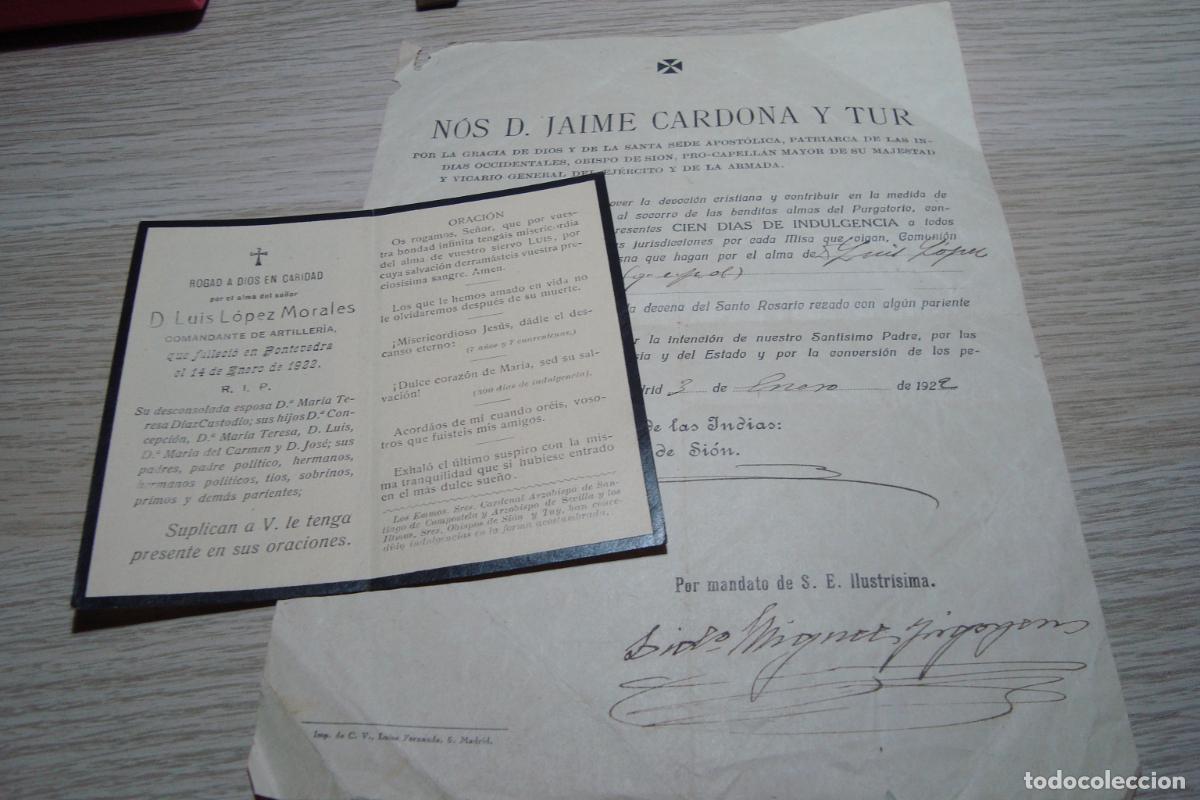 NÓS D. JAIME CARDONA Y TUR
POR LA GRACIA DE DIOS Y DE LA SANTA SEDE APOSTÓLICA, PATRIARCA DE LAS IN-
DIAS OCCIDENTALES, OBISPO DE SION, PRO-CAPELLÁN MAYOR DE SU MAJESTAD
Y VICARIO GENERAL DEL EJÉRCITO Y DE LA ARMADA.
over la devoción cristiana y contribuir en la medida de
al socorro de las benditas almas del Purgatorio, con-
presentes CIEN DIAS DE INDULGENCIA a todos
s jurisdicciones por cada Misa que oigan, Comunión
sna que hagan por el alma de D. Luis López
(q. e. p. d.)
la decena del Santo Rosario rezado con algún pariente
r la intención de nuestro Santísimo Padre, por las
sia y del Estado y por la conversión de los pe-
drid 3 de Enero de 1922
de las Indias:
de Sión.
Por mandato de S. E. Ilustrísima.
Miguel
Imp. de C. V., Luisa Fernanda, 5, Madrid.
ROGAD A DIOS EN CARIDAD
por el alma del señor
D. Luis López Morales
COMANDANTE DE ARTILLERÍA,
que falleció en Pontevedra
el 14 de Enero de 1922.
R. I. P.
Su desconsolada esposa D.ª María Te-
resa Díaz Custodio; sus hijos D.ª Con-
cepción, D.ª María Teresa, D. Luis,
D.ª María del Carmen y D. José; sus
padres, padre político, hermanos,
hermanos políticos, tíos, sobrinos,
primos y demás parientes;
Suplican a V. le tenga
presente en sus oraciones.
ORACIÓN
Os rogamos, Señor, que por vues-
tra bondad infinita tengáis misericordia
del alma de vuestro siervo LUIS, por
cuya salvación derramásteis vuestra pre-
ciosísima sangre. Amen.
Los que le hemos amado en vida no
le olvidaremos después de su muerte.
¡Misericordioso Jesús, dádle el des-
canso eterno! (7 años y 7 cuarentenas.)
¡Dulce corazón de María, sed su sal-
vación! (300 días de indulgencia).
Acordáos de mí cuando oréis, voso-
tros que fuisteis mis amigos.
Exhaló el último suspiro con la mis-
ma tranquilidad que si hubiese entrado
en el más dulce sueño.
Los Emmos. Sres. Cardenal Arzobispo de San-
tiago de Compostela y Arzobispo de Sevilla y los
Iltmos. Sres. Obispos de Sión y Tuy, han conce-
dido indulgencias en la forma acostumbrada.
todocoleccion